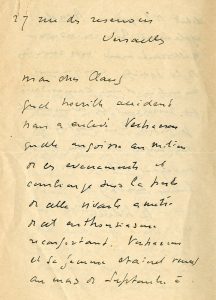 27 rue des reservoirs
Versailles
mon cher Claus
quel horrible accident
nous a enlevé Verhaeren
quelle angoisse au milieu
de ces evenements et
combien je sens la perte
de cette vivante amitié
et enthousiasme
reconfortant. Verhaeren
et sa femme etaient venus
au mois de Septembre à